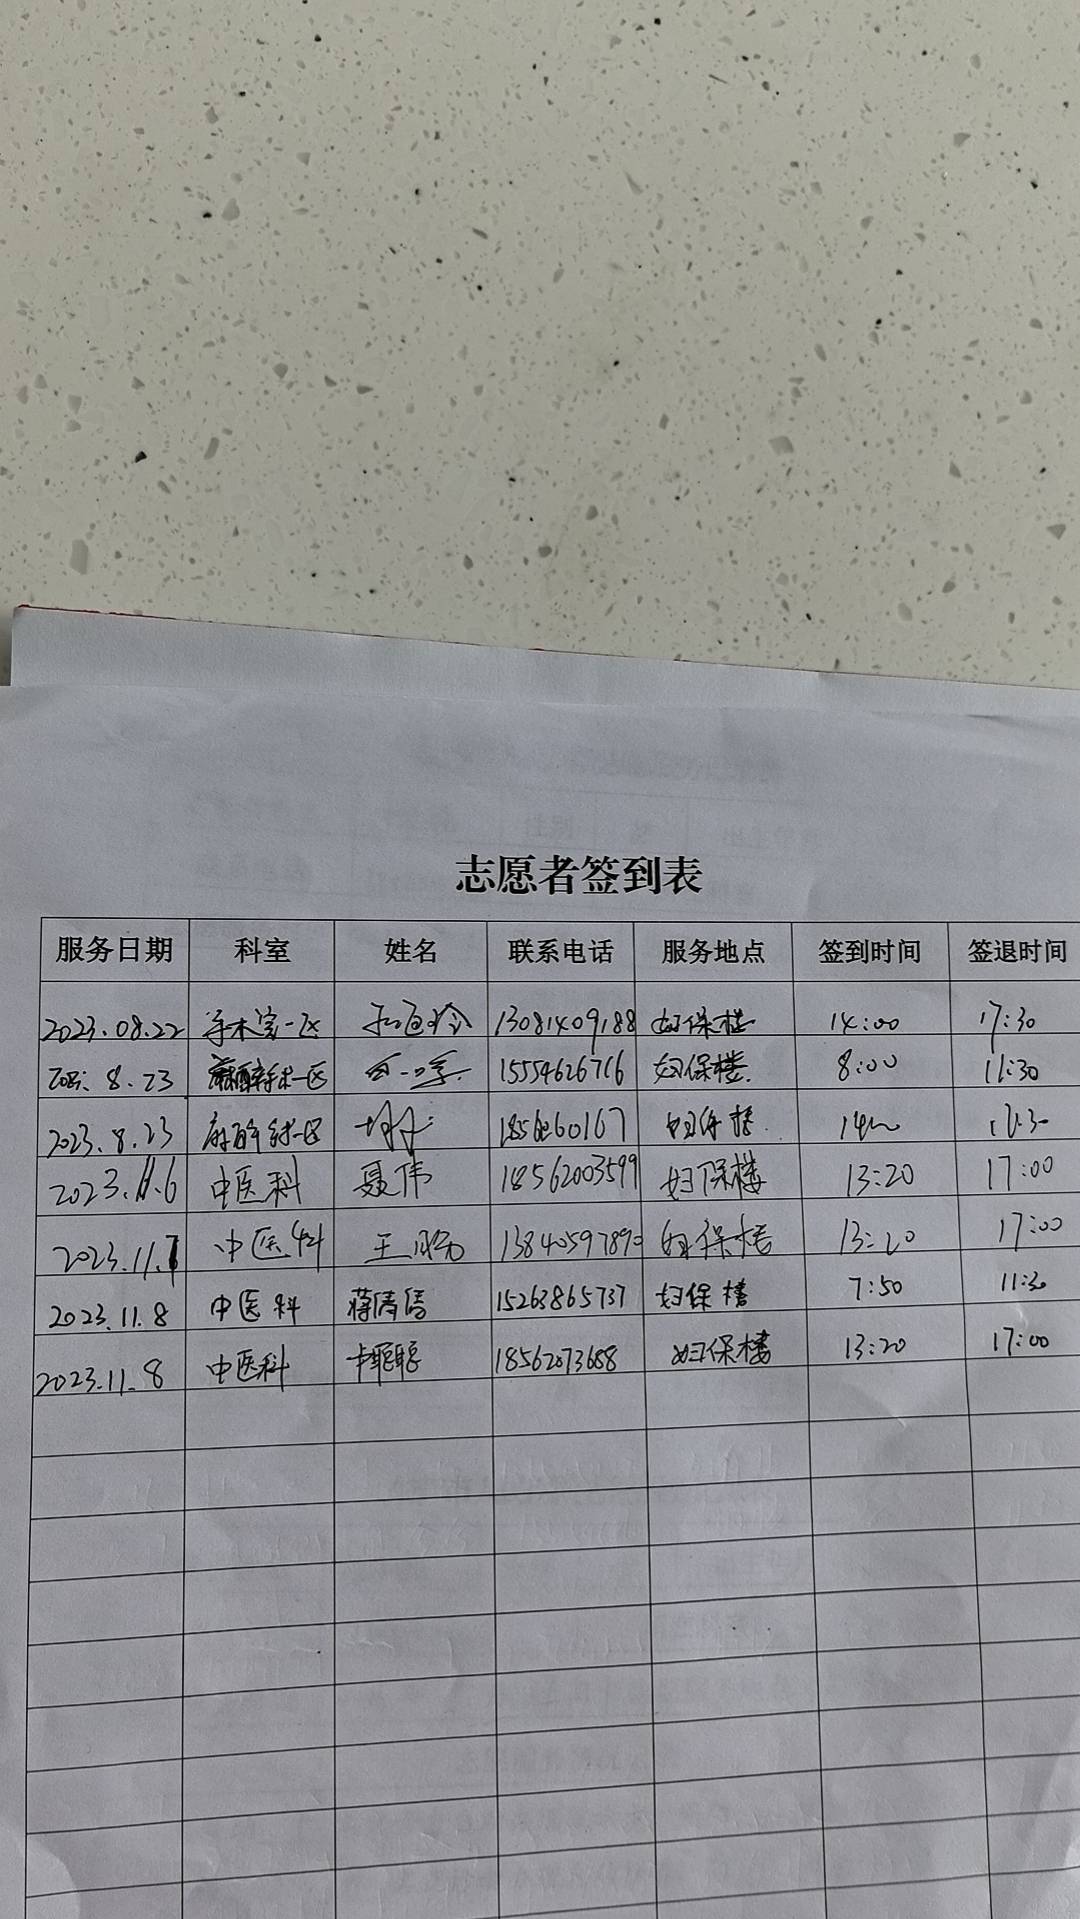 志愿者签到表
服务日期 科室 姓名 联系电话 服务地点 签到时间 签退时间
2023.08.22 手术室一区 13081409188 妇保楼 14:00 17:30
2023. 8.23 麻醉手术一区 15554626716 妇保楼. 8:00 11:30
2023.8.23 妇保楼
2023.11.6 中医科 聂伟 18562003599 妇保楼 13:20 17:00
2023.11.7 中医科 王 妇保楼 13:20 17:00
2023.11.8 中医科 蒋倩倩 15263865737 妇保楼 7:50 11:30
2023.11.8 中医科 18562073688 妇保楼 13:20 17:00